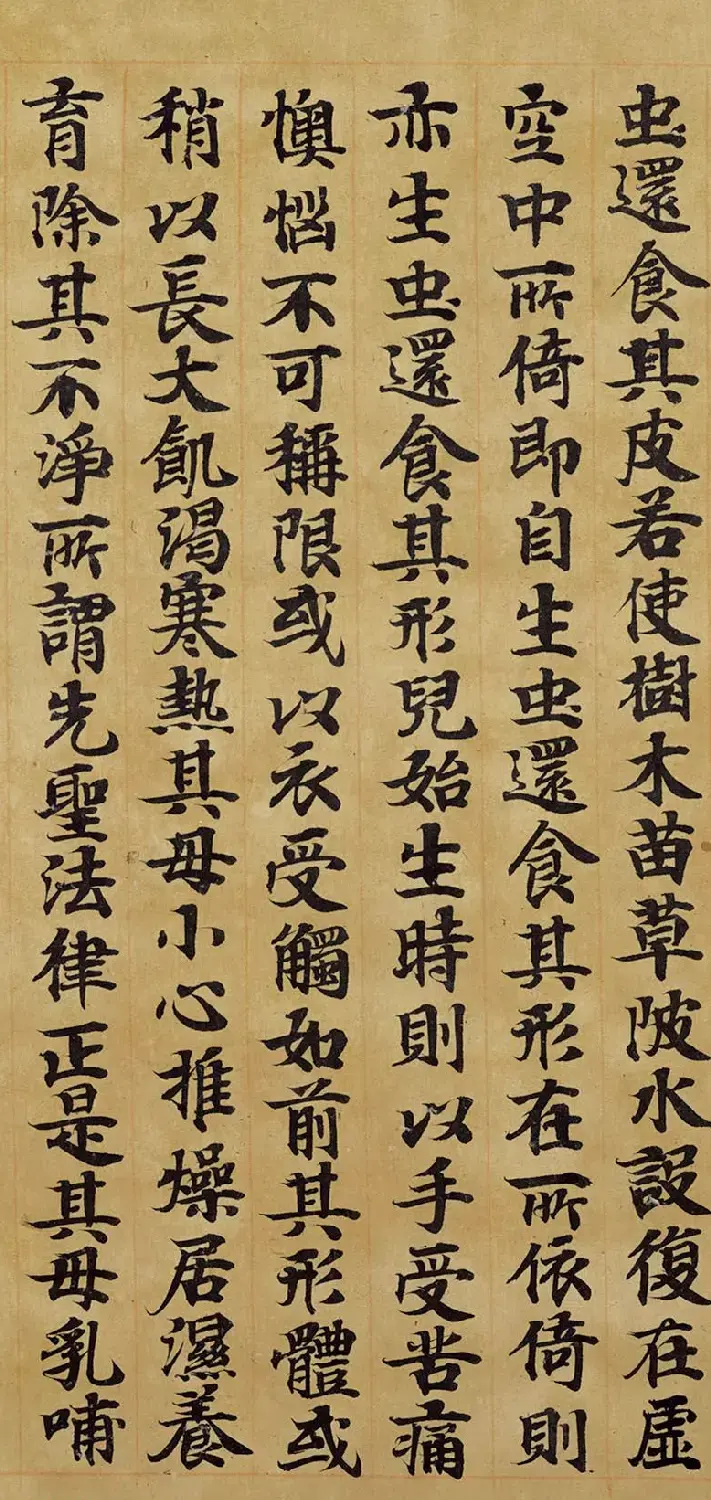 虫還食其皮若使樹木苗草陂水設復在虛
空中所倚即自生虫還食其形在所依倚則
亦生虫還食其形兒始生時則以手受苦痛
懊惱不可稱限或以衣受觸如前其形體或
稍以長大飢渴寒熱其母小心推燥居濕養
育除其不淨所謂先聖法律正是其母乳哺